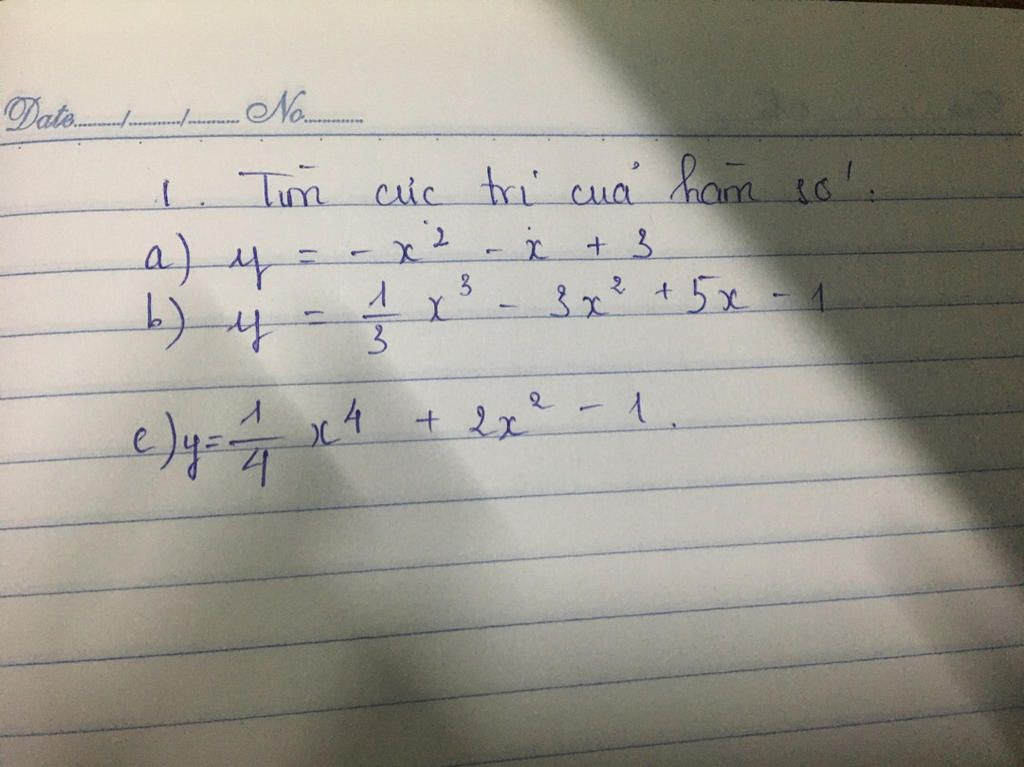 Date......../......../........ No..........
1. Tìm cực trị của hàm số:
a) y = -x² - x + 3
b) y = 1/3 x³ - 3x² + 5x - 1
c) y = 1/4 x⁴ + 2x² - 1.